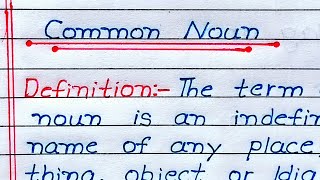 Common Noun
Definition:- The term
noun is an indefin
name of any place,
thing, object or Idia